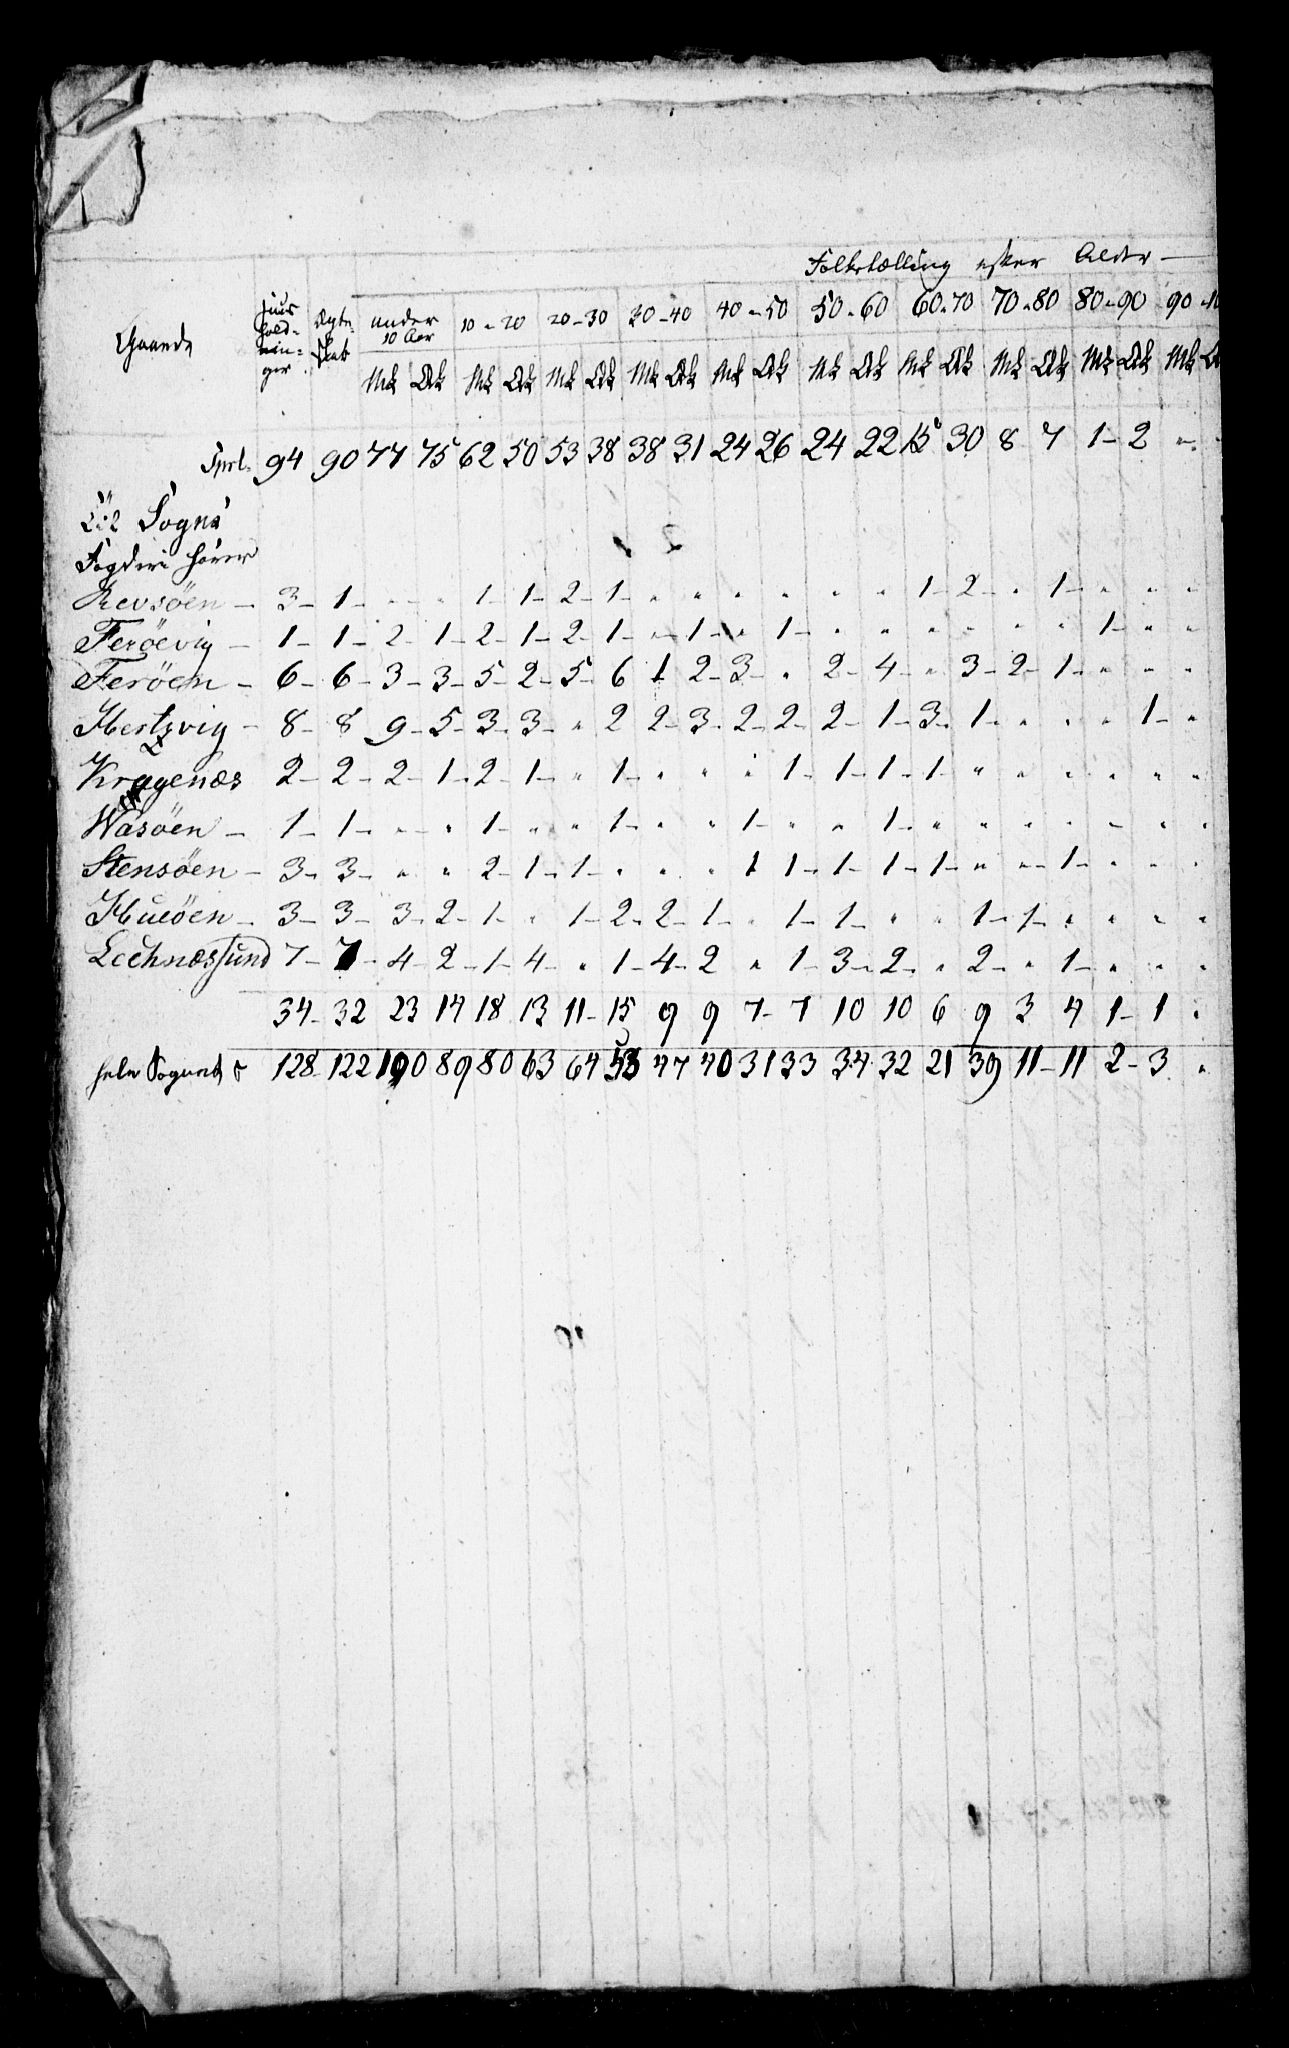 Folketælling efter Alder —
Gaarde Huus hold= nin= ger Ægte skab under 10 Aar 10 - 20 20 - 30 30 - 40 40 - 50 50 - 60 60 - 70 70 - 80 80 - 90 90 - 10
Mk Qk Mk Qk Mk Qk Mk Qk Mk Qk Mk Qk Mk Qk Mk Qk Mk Qk Mk
94 90 77 75 62 50 53 38 38 31 24 26 24 22 15 30 8 7 1 - 2 "
Sogns
Fogderi hører
Revsöen — 3 - 1 - " " 1 - 1 - 2 - 1 - " " " " " " 1 - 2 - " 1 - " " "
Feröevig — 1 - 1 - 2 - 1 - 2 - 1 - 2 - 1 - " 1 - " 1 - " " " " " " 1 - " "
Feröen — 6 - 6 - 3 - 3 - 5 - 2 - 5 - 6 1 2 - 3 - " 2 - 4 - " 3 - 2 - 1 - " " "
Hertzvig — 8 - 8 9 - 5 - 3 - 3 - " 2 2 - 3 - 2 - 2 - 2 - 1 - 3 - 1 - " " " 1 - "
Kragenæs 2 - 2 - 2 - 1 - 2 - 1 - " 1 - " " " 1 - 1 - 1 - 1 - " " " " " "
Wasöen — 1 - 1 - " " 1 - " " 1 - " " 1 - " " 1 - " " " " " " "
Stensöen — 3 - 3 - " " 2 - 1 - 1 - " " " 1 1 - 1 - 1 - 1 - " " 1 - " " "
Hueöen — 3 - 3 - 3 - 2 - 1 - " 1 - 2 - 2 - 1 - " 1 - 1 - " " 1 - 1 - " " " "
Lechnæssund 7 - 7 - 4 - 2 - 1 - 4 - " 1 - 4 - 2 " 1 - 3 - 2 - " 2 - " 1 - " " "
34 - 32 23 14 18 13 11 - 15 9 9 7 - 7 10 10 6 9 3 4 1 - 1 "
hele Sognets 128 - 122 100 89 80 63 64 53 47 40 31 33 34 32 21 39 11 - 11 2 - 3 "